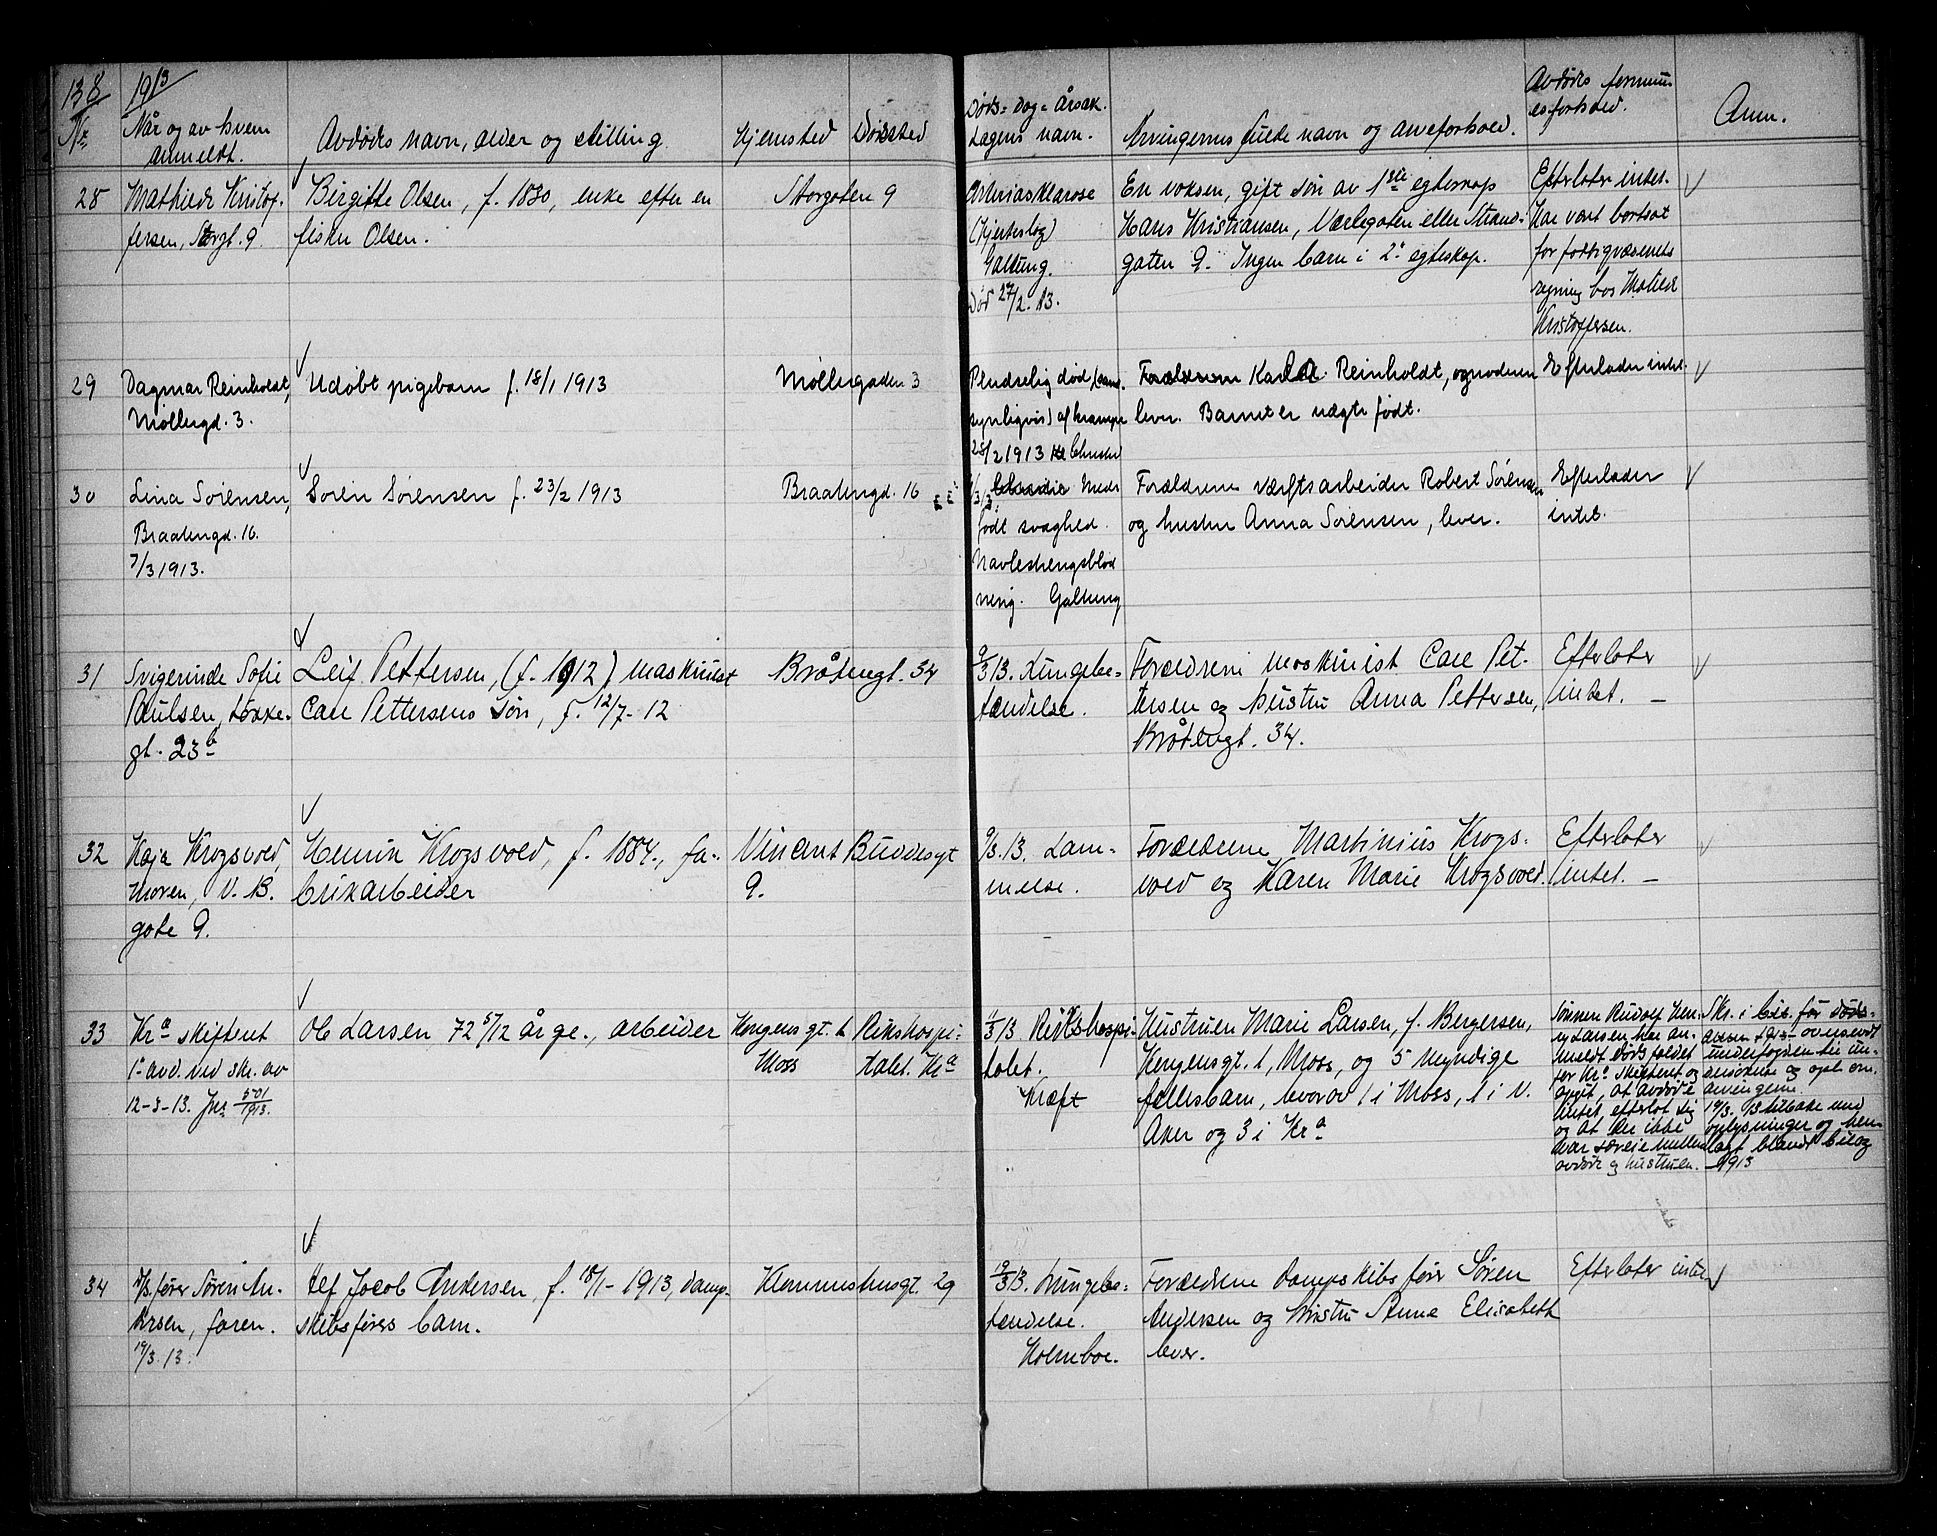 138
1913
Nr
Når og av hvem
anmeldt.
Avdødes navn, alder og stilling.
Hjemsted
Dødssted
Døds= dag= årsak.
Lægens navn.
Arvingernes fulde navn og arveforhold.
Avdødes formu-
esforhold.
Anm.
28
Mathilde Kristof-
fersen, Storgt. 9.
Birgitte Olsen, f. 1830, enke efter en
fisker Olsen.
Storgaten 9
(Hjerteslag)
Galtung.
Død 27/2. 13.
En voksen, gift søn av 1ste egteskap
Hans Kristiansen, Værlegaten eller Strand-
gaten 9. Ingen barn i 2. egteskap.
Efterlater intet.
Har vært bortsat
for fattigvæsenets
regning hos Matilde
Kristoffersen.
29
Dagmar Reinholdt,
Møllergd. 3.
Udøbt pigebarn f. 18/1 1913
Møllergaden 3
Pludselig død (sand-
synligvis) af krampe
28/2 1913
Forældrene Karl Reinholdt, og moderen
lever. Barnet er uægte født.
Efterlader intet.
30
Lina Sørensen,
Braatengd. 16.
7/3 1913.
Søren Sørensen f. 23/2 1913
Braatengd. 16
Med-
født svaghed.
Navlestrengsblød
ning. Galtung
Forældrene værftsarbeider Robert Sørensen
og hustru Anna Sørensen, lever.
Efterlader
intet.
31
Svigerinde Sofie
Paulsen, Løkke-
gt. 23b
Leif Pettersen, (f. 1912) maskinist
Carl Pettersens søn, f. 12/7-12
Bråtengt. 34
9/3 13. Lungebe-
tændelse.
Forældrene maskinist Carl Pet-
tersen og hustru Anna Pettersen,
Bråtengt. 34.
Efterlater
intet. –
32
Kaja Krogsvold,
moren, V. B.
gate 9.
Henrik Krogsvold, f. 1884, fa-
brikarbeider
Vincent Buddesgt
9.
9/3. 13. Lam-
melse.
Forældrene Martinius Krogs-
vold og Karen Marie Krogsvold.
Efterlater
intet. –
33
Kra skifteret
1. avd. ved skr. av
12-3-13. Jnr 501/1913.
Ole Larsen 72 5/12 år ge., arbeider
Kongens gt. 1
Moss
Rikshospi-
talet. Kra
11/3 13 Rikshospi-
talet.
Kræft
Hustruen Marie Larsen, f. Bergersen,
Kongensgt. 1, Moss, og 5 myndige
fællesbarn, hvorav 1 i Moss, 1 i V.
Aker og 3 i Kra
Sønnen Rudolf Hen-
ry Larsen har an-
meldt dødsfaldet
for Kra skifteret og
opgit, at avdøde
intet efterlot sig
og at der ikke
var særeie mellem
avdøde og hustruen.
Skr. i bil. for døds-
anm. 1913 oversendt
underfogden til un-
dersøkelse og opl. om
arvingerne.
19/3. 13 tilbake med
oplysninger og hen-
lagt blandt bilag
1913
34
D/s. fører Søren An-
dersen, faren.
19/3. 13.
Alf Jacob Andersen, f. 18/1-1913, damp-
skibsførers barn.
Klommestensgt. 29
19/3 13. Lungebe-
tændelse.
Holmboe.
Forældrene dampskibsfører Søren
Andersen og hustru Anna Elisabeth
lever.
Efterlater intet